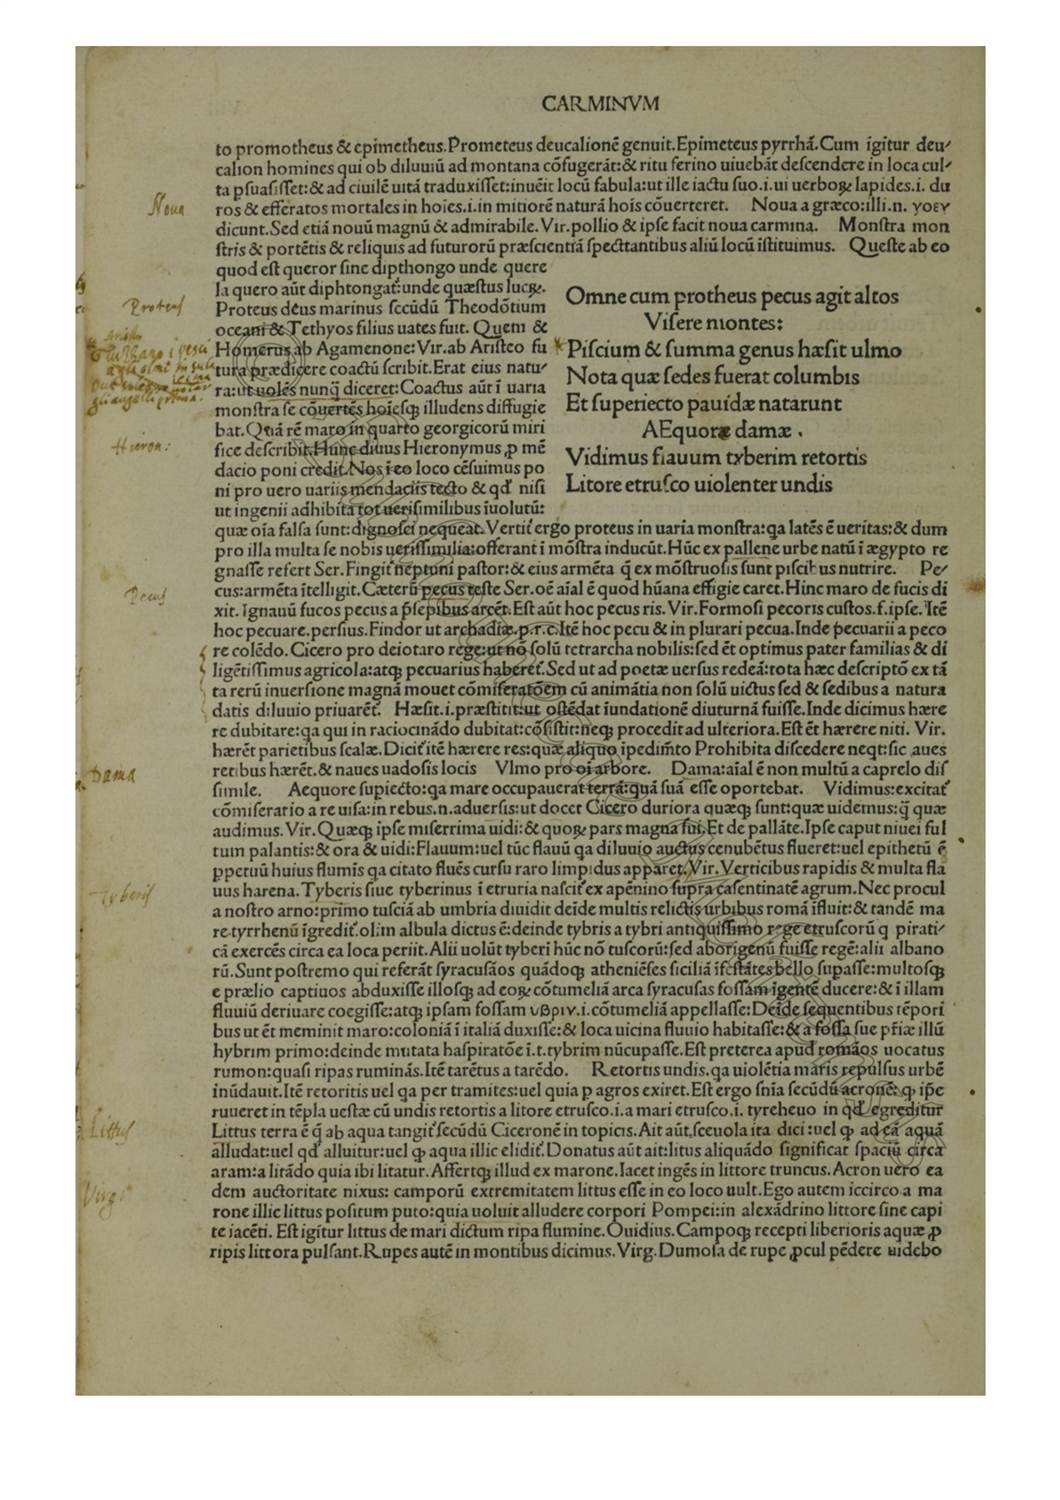 CARMINVM
to promotheus & epimetheus.Prometeus deucalionē genuit.Epimeteus pyrrhā.Cum īgitur deu/
calion homines qui ob diluuiū ad montana cōfugerāt:& ritu ferino uiuebāt descendere in loca cul/
ta ꝑsuasisset:& ad ciuilē uitā traduxisset:inuēit locū fabula:ut ille iactu suo.i.ui uerboꝝ lapides.i. du
ros & efferatos mortales in hoīes.i.in mitiorē naturā hoīs cōuerteret. Noua a græco:illi.n. γοεν
dicunt.Sed etiā nouū magnū & admirabile.Vir.pollio & ipse facit noua carmina. Monstra mon
stris & portētis & reliquis ad futurorū præscientiā spectantibus aliū locū īstituimus. Queste ab eo
quod est queror sine dipthongo unde quere
la quero aūt diphtongat̄:unde quæstus lucꝝ.
Proteus deus marinus secūdū Theodōtium
oceani & Tethyos filius uates fuit. Quem &
Homerus ab Agamenone:Vir.ab Aristeo fu
tura prædicere coactū scribit.Erat eius natu/
ra:ut uolēs nunq̄ diceret:Coactus aūt ī uaria
monstra se cōuertēs hoīesq; illudens diffugie
bat.Quā rē maro in quarto georgicorū miri
fice describit.Hunc diuus Hieronymus ꝓ mē
dacio poni credit.Nos ieo loco cēsuimus po
ni pro uero uariis mendaciis tecto & qd̄ nisi
ut ingenii adhibita tot uerisimilibus īuolutū:
Omne cum protheus pecus agit altos
Visere montes:
Piscium & summa genus hæsit ulmo
Nota quæ sedes fuerat columbis
Et superiecto pauidæ natarunt
AEquore damæ .
Vidimus flauum tyberim retortis
Litore etrusco uiolenter undis
quæ oīa falsa sunt:dignosci nequeat.Vertit̄ ergo proteus in uaria monstra:qa latēs ē ueritas:& dum
pro illa multa se nobis uerissimilia:offerant ī mōstra inducūt.Hūc ex pallene urbe natū ī ægypto re
gnasse refert Ser.Fingit̄ neptuni pastor:& eius armēta q̄ ex mōstruosis sunt piscibus nutrire. Pe/
cus:armēta ītelligit.Cæterū pecus teste Ser.oē aīal ē quod hūana effigie caret.Hinc maro de fucis di
xit.Ignauū fucos pecus a p̄sepibus arcēt.Est aūt hoc pecus ris.Vir.Formosi pecoris custos.f.ipse.Itē
hoc pecuare.persius.Findor ut archadiæ.p.r.c.Itē hoc pecu & in plurari pecua.Inde pecuarii a peco
re colēdo.Cicero pro deiotaro rege:ut nō solū tetrarcha nobilis:sed ēt optimus pater familias & di
ligētissimus agricola:atq; pecuarius haberet̄.Sed ut ad poetæ uersus redeā:tota hæc descriptō ex tā
ta rerū inuersione magnā mouet cōmiseratōem cū animātia non solū uictus sed & sedibus a natura
datis diluuio priuarēt̄. Hæsit.i.præstitit:ut ostēdat īundationē diuturnā fuisse.Inde dicimus hære
re dubitare:qa qui in raciocināndo dubitat:cōsistit:neq; procedit ad ulteriora.Est ēt hærere niti. Vir.
hærēt parietibus scalæ.Dicit̄ itē hærere res:quæ aliquo īpedim̄to Prohibita discedere neqt:sic aues
retibus hærēt.& naues uadosis locis Vlmo pro oī arbore. Dama:aīal ē non multū a caprelo dis
simile. Aequore supiecto:qa mare occupauerat terrā:quā suā esse oportebat. Vidimus:excitat̄
cōmiseratio a re uisa:in rebus.n.aduersis:ut docet Cicero duriora quæq; sunt:quæ uidemus:q̄ quæ
audimus.Vir.Quæq; ipse miserrima uidi:& quoꝝ pars magna fui.Et de pallāte.Ipse caput niuei ful
tum palantis:& ora & uidi:Flauum:uel tūc flauū qa diluuio auctus cenubētus flueret:uel epithetū ē
ꝑpetuū huius flumīs qa citato fluēs cursu raro limpidus apparet.Vir.Verticibus rapidis & multa fla
uus harena.Tyberis siue tyberinus ī etruria nascit̄ ex apēnino supra casentinatē agrum.Nec procul
a nostro arno:primo tusciā ab umbria diuidit deīde multis relictis urbibus romā īfluit:& tandē ma
re tyrrhenū īgredit̄.olim albula dictus ē:deinde tybris a tybri antiquissimo rege etruscorū q pirati/
cā exercēs circa ea loca periit.Alii uolūt tyberi hūc nō tuscorū:sed aborigenū fuisse regē:alii albano
rū.Sunt postremo qui referāt syracusāos quādoq; atheniēses siciliā īfestātes bello supasse:multosq;
e prælio captiuos abduxisse illosq; ad eoꝝ cōtumeliā arca syracusas fossam īgentē ducere:& ī illam
fluuiū deriuare coegisse:atq; ipsam fossam υβριν.i.cōtumeliā appellasse:Deīde sequentibus tēpori
bus ut ēt meminit maro:coloniā ī italiā duxisse:& loca uicina fluuio habitasse:& a fossa sue p̄riæ illū
hybrim primo:deinde mutata haspiratōe ī.t.tybrim nūcupasse.Est preterea apud romāos uocatus
rumon:quasi ripas ruminās.Itē tarētus a tarēdo. Retortis undis.qa uiolētia maris repulsus urbē
inūdauit.Itē retoritis uel qa per tramites:uel quia p agros exiret.Est ergo s̄nia secūdū acronē: ꝙ ip̄e
rueret in tēpla uestæ cū undis retortis a litore etrusco.i.a mari etrusco.i. tyreheuo in qd̄ egreditur
Littus terra ē q̄ ab aqua tangit̄ secūdū Ciceronē in topicis.Ait aūt.sceuola ita dici :uel ꝙ ad eā aquā
alludat:uel qd̄ alluitur:uel ꝙ aqua illic elidit̄.Donatus aūt ait:litus aliquādo significat spaciū circa
aram:a litādo quia ibi litatur. Affertq; illud ex marone.Iacet ingēs in littore truncus.Acron uero ea
dem auctoritate nixus: camporū extremitatem littus esse in eo loco uult.Ego autem iccirco a ma
rone illic littus positum puto:quia uoluit alludere corpori Pompei:in alexādrino littore sine capi
te iacēti. Est igitur littus de mari dictum ripa flumine. Ouidius.Campoq; recepti liberioris aquæ ꝓ
ripis littora pulsant.Rupes autē in montibus dicimus.Virg.Dumosa de rupe ꝓcul pēdere uidebo
Noua
Proteus
Hieron:
Pecus
Dama
Tyberis
Littus
Virgi